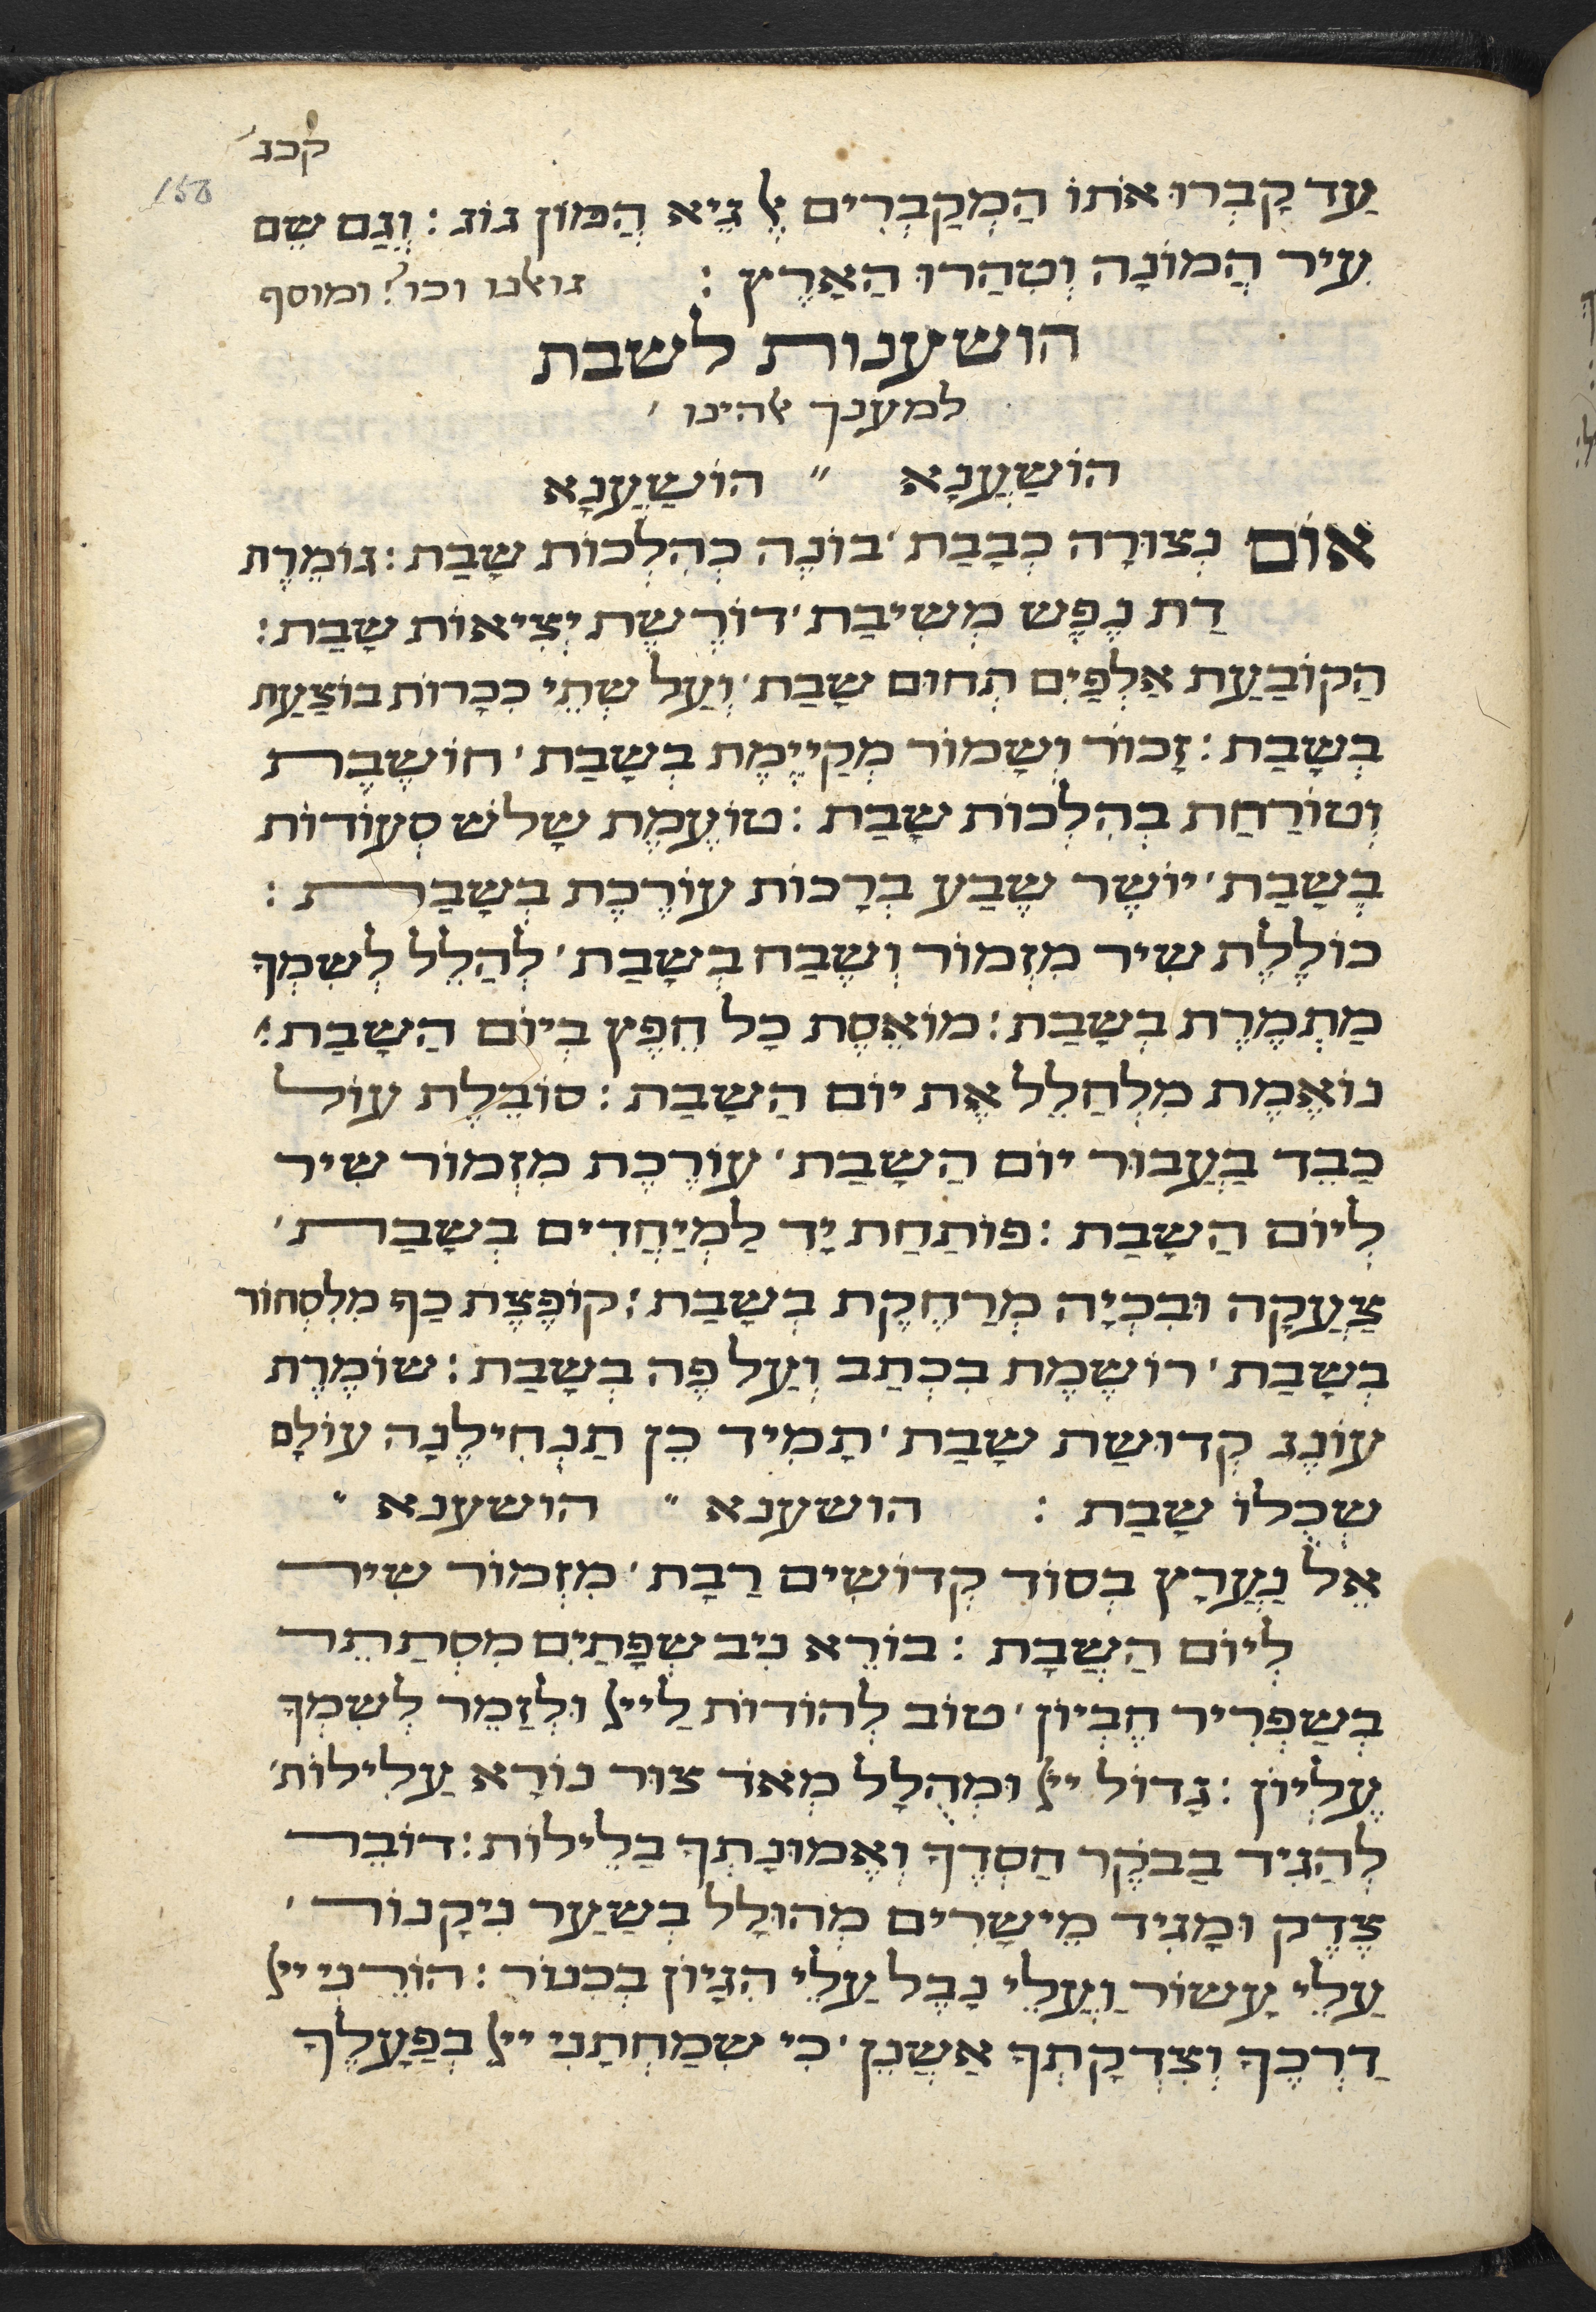 קכג
158
עַד קָבְרוּ אֹתוֹ הַמְקַבְרִים אֶל גֵּיא הֲמוֹן גוֹג : וְגַם שֵׁם
עִיר הֲמוֹנָה וְטִהֲרוּ הָאָרֶץ : גואלנו וכו' ומוסף
הושענות לשבת
למענך אלהינו
הוֹשַׁעֲנָא " הוֹשַׁעֲנָא
אוֹם נְצוּרָה כְּבָבַת ' בּוֹנֶה בְּהִלְכוֹת שַׁבָּת : גוֹמֶרֶת
דַת נֶפֶשׁ מְשִׁיבַת ' דוֹרֶשֶׁת יְצִיאוֹת שַׁבָּת :
הַקוֹבַעַת אַלְפַּיִם תְּחוּם שַׁבָּת ' וְעַל שְׁתֵּי כִכָּרוֹת בּוֹצַעַת
בְּשַׁבָּת : זָכוֹר וְשָׁמוֹר מְקַיֶימֶת בְּשַׁבָּת ' חוֹשֶׁבֶת
וְטוֹרַחַת בְּהִלְכוֹת שַׁבָּת : טוֹעֶמֶת שָׁלֹשׁ סְעוּדוֹת
בְּשַׁבָּת ' יוֹשֶׁר שֶׁבַע בְּרָכוֹת עוֹרֶכֶת בְּשַׁבָּת :
כּוֹלֶלֶת שִׁיר מִזְמוֹר וְשֶׁבַח בְּשַׁבָּת ' לְהַלֵל לְשִׁמְךָ
מַתְמֶרֶת בְּשַׁבָּת : מוֹאֶסֶת כָּל חֵפֶץ בְּיוֹם הַשַׁבָּת '
נוֹאֶמֶת מִלְחַלֵל אֶת יוֹם הַשַׁבָּת : סוֹבֶלֶת עוֹל
כָּבֵד בַּעֲבוּר יוֹם הַשַׁבָּת ' עוֹרֶכֶת מִזְמוֹר שִׁיר
לְיוֹם הַשַׁבָּת : פּוֹתַחַת יָד לַמְיַחֲדִים בְּשַׁבָּת '
צְעָקָה וּבְכִיָה מְרַחֶקֶת בְּשַׁבָּת : קוֹפֶצֶת כַּף מִלִסְחוֹר
בְּשַׁבָּת ' רוֹשֶׁמֶת בִּכְתַב וְעַל פֶּה בְּשַׁבָּת : שׁוֹמֶרֶת
עוֹנֶג קְדוּשַׁת שַׁבָּת ' תָּמִיד כֵּן תַּנְחִילֶנָה עוֹלָם
שֶׁכֻּלוֹ שַׁבָּת : הושענא " הושענא "
אֵל נַעֲרָץ בְּסוֹד קְדוֹשִׁים רַבָּת ' מִזְמוֹר שִׁיר
לְיוֹם הַשַׁבָּת : בּוֹרֵא נִיב שְׂפָתַיִם מִסְתַּתֵר
בְּשַׁפְרִיר חֶבְיוֹן ' טוֹב לְהוֹדוֹת לַייָ וּלְזַמֵר לְשִׁמְךָ
עֶלְיוֹן : גָדוֹל ייָ וּמְהֻלָל מְאֹד צוּר נוֹרָא עֲלִילוֹת '
לְהַגִיד בַּבֹּקֶר חַסְדֶךָ וֶאֱמוּנָתְךָ בַּלֵילוֹת : דוֹבֵר
צֶדֶק וּמַגִיד מֵישָׁרִים מְהוּלָל בְּשַׁעַר נִיקָנוֹר '
עֲלֵי עָשׂוֹר וַעֲלֵי נָבֶל עֲלֵי הִגָיוֹן בְּכִנוֹר : הוֹרֵנִי ייָ
דְרָכֶךָ וְצִדְקָתְךָ אֲשַׁנֵן ' כִּי שִׂמַחְתַּנִי ייָ בְּפָעֳלֶךָ